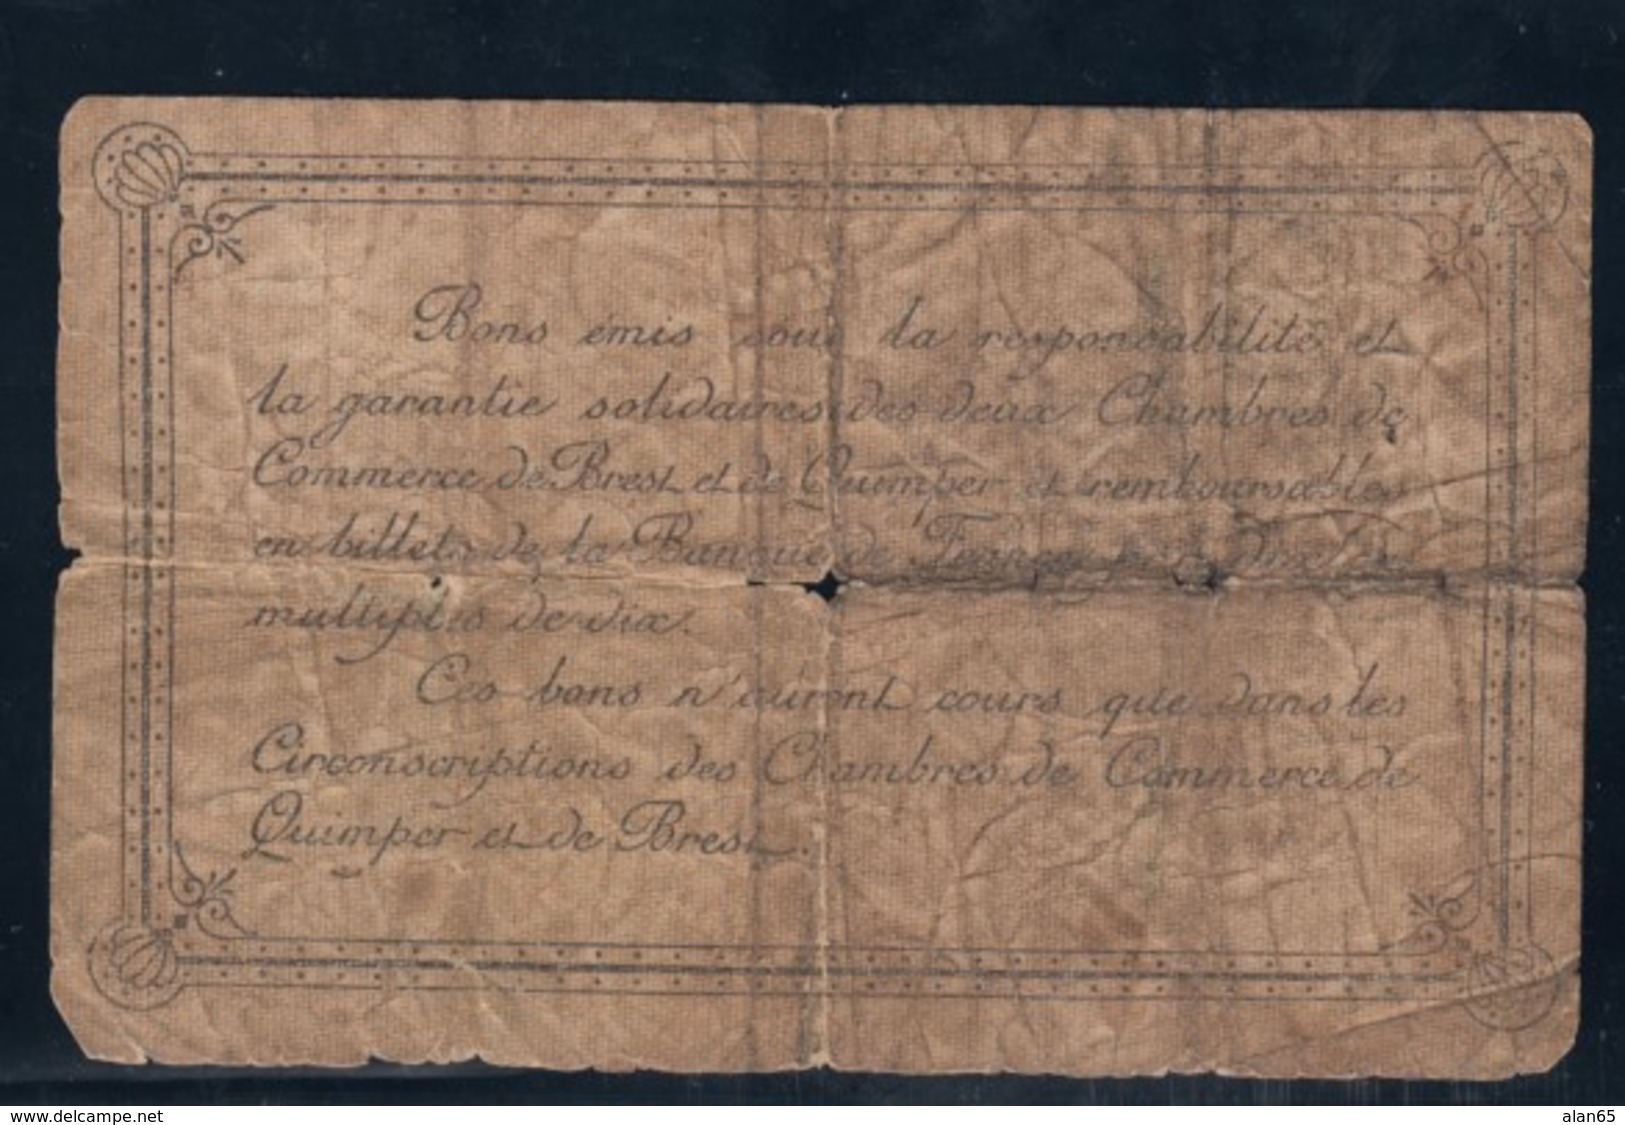 Bons émis sous la responsabilité et
la garantie solidaires des deux Chambres de
Commerce de Brest et de Quimper et remboursables
en billets de la Banque de France
multiples de dix.
Ces bons n'auront cours que dans les
Circonscriptions des Chambres de Commerce de
Quimper et de Brest.
www.delcampe.net
alan65